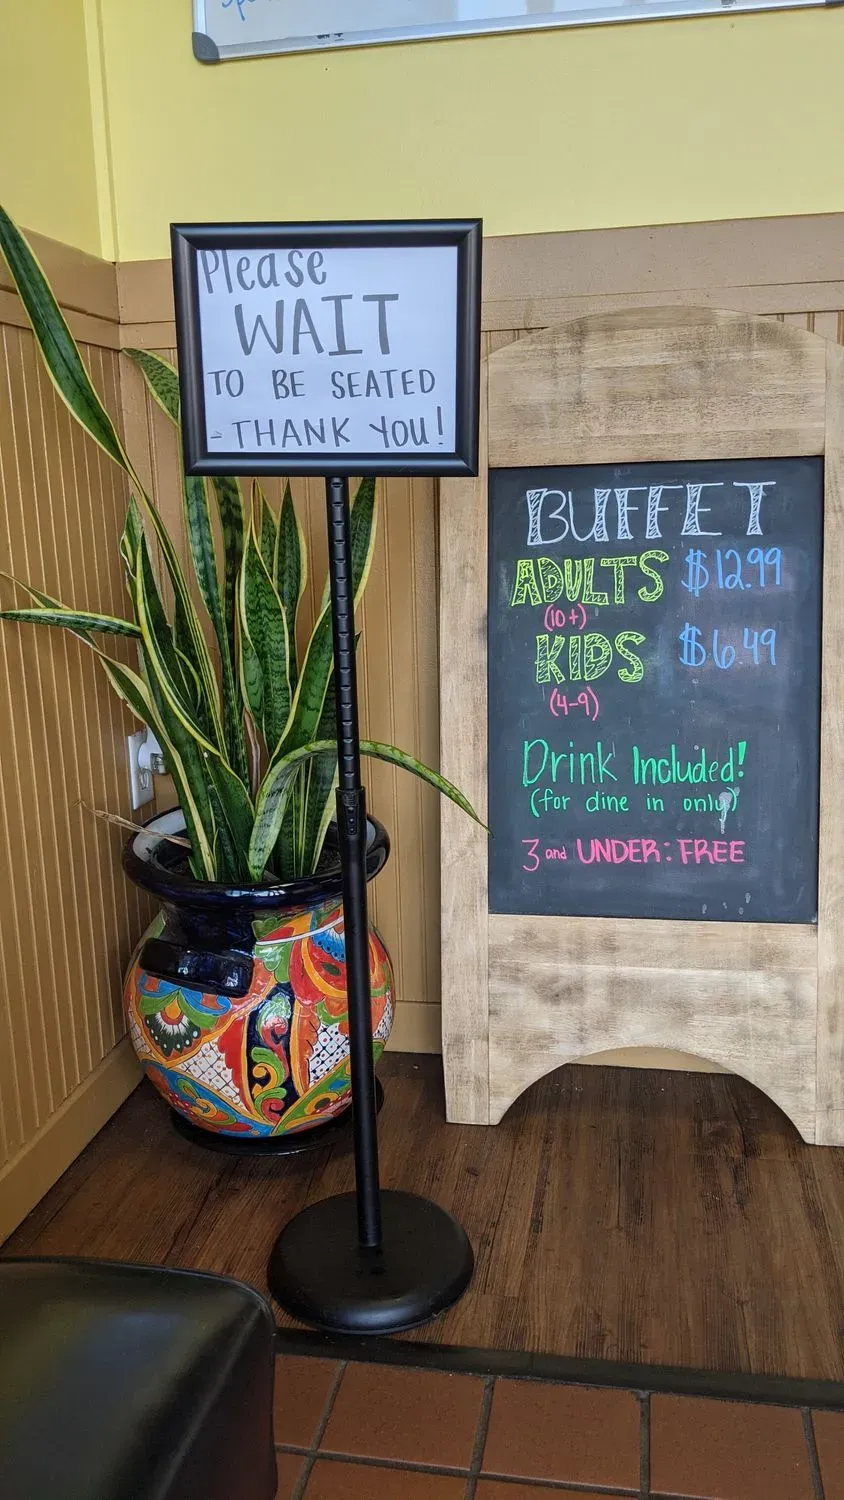 Please
WAIT
TO BE SEATED
- THANK YOU!
BUFFET
ADULTS $12.99
(10+)
KIDS $6.49
(4-9)
Drink Included!
(for dine in only)
3 and UNDER: FREE